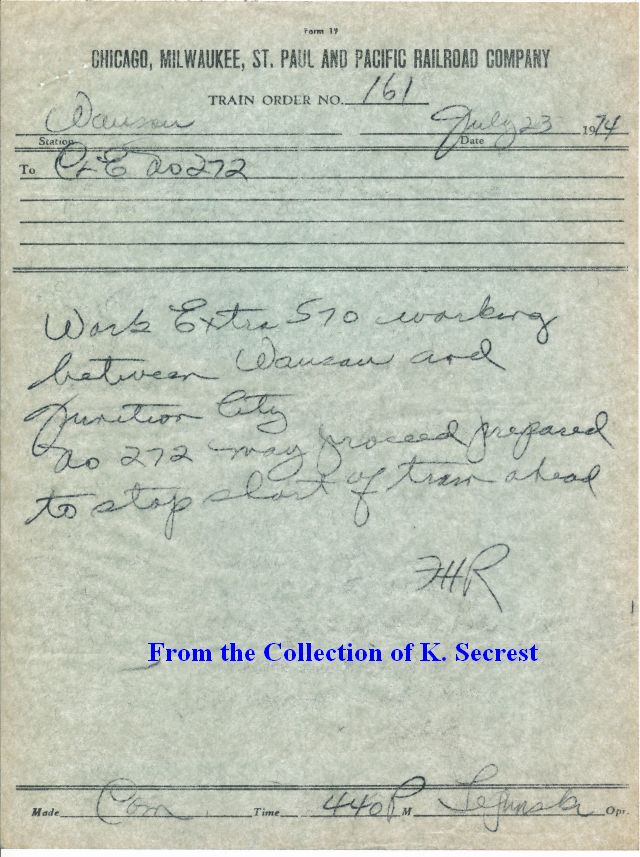 Form 19
CHICAGO, MILWAUKEE, ST. PAUL AND PACIFIC RAILROAD COMPANY
TRAIN ORDER NO. 161
Wausau July 23 1974
Station Date
To C&E no 272
Work Extra 570 working
between Wausau and
Junction City
no 272 may proceed prepared
to stop short of train ahead
FHR
From the Collection of K. Secrest
Made Com Time 440 P M Opr.